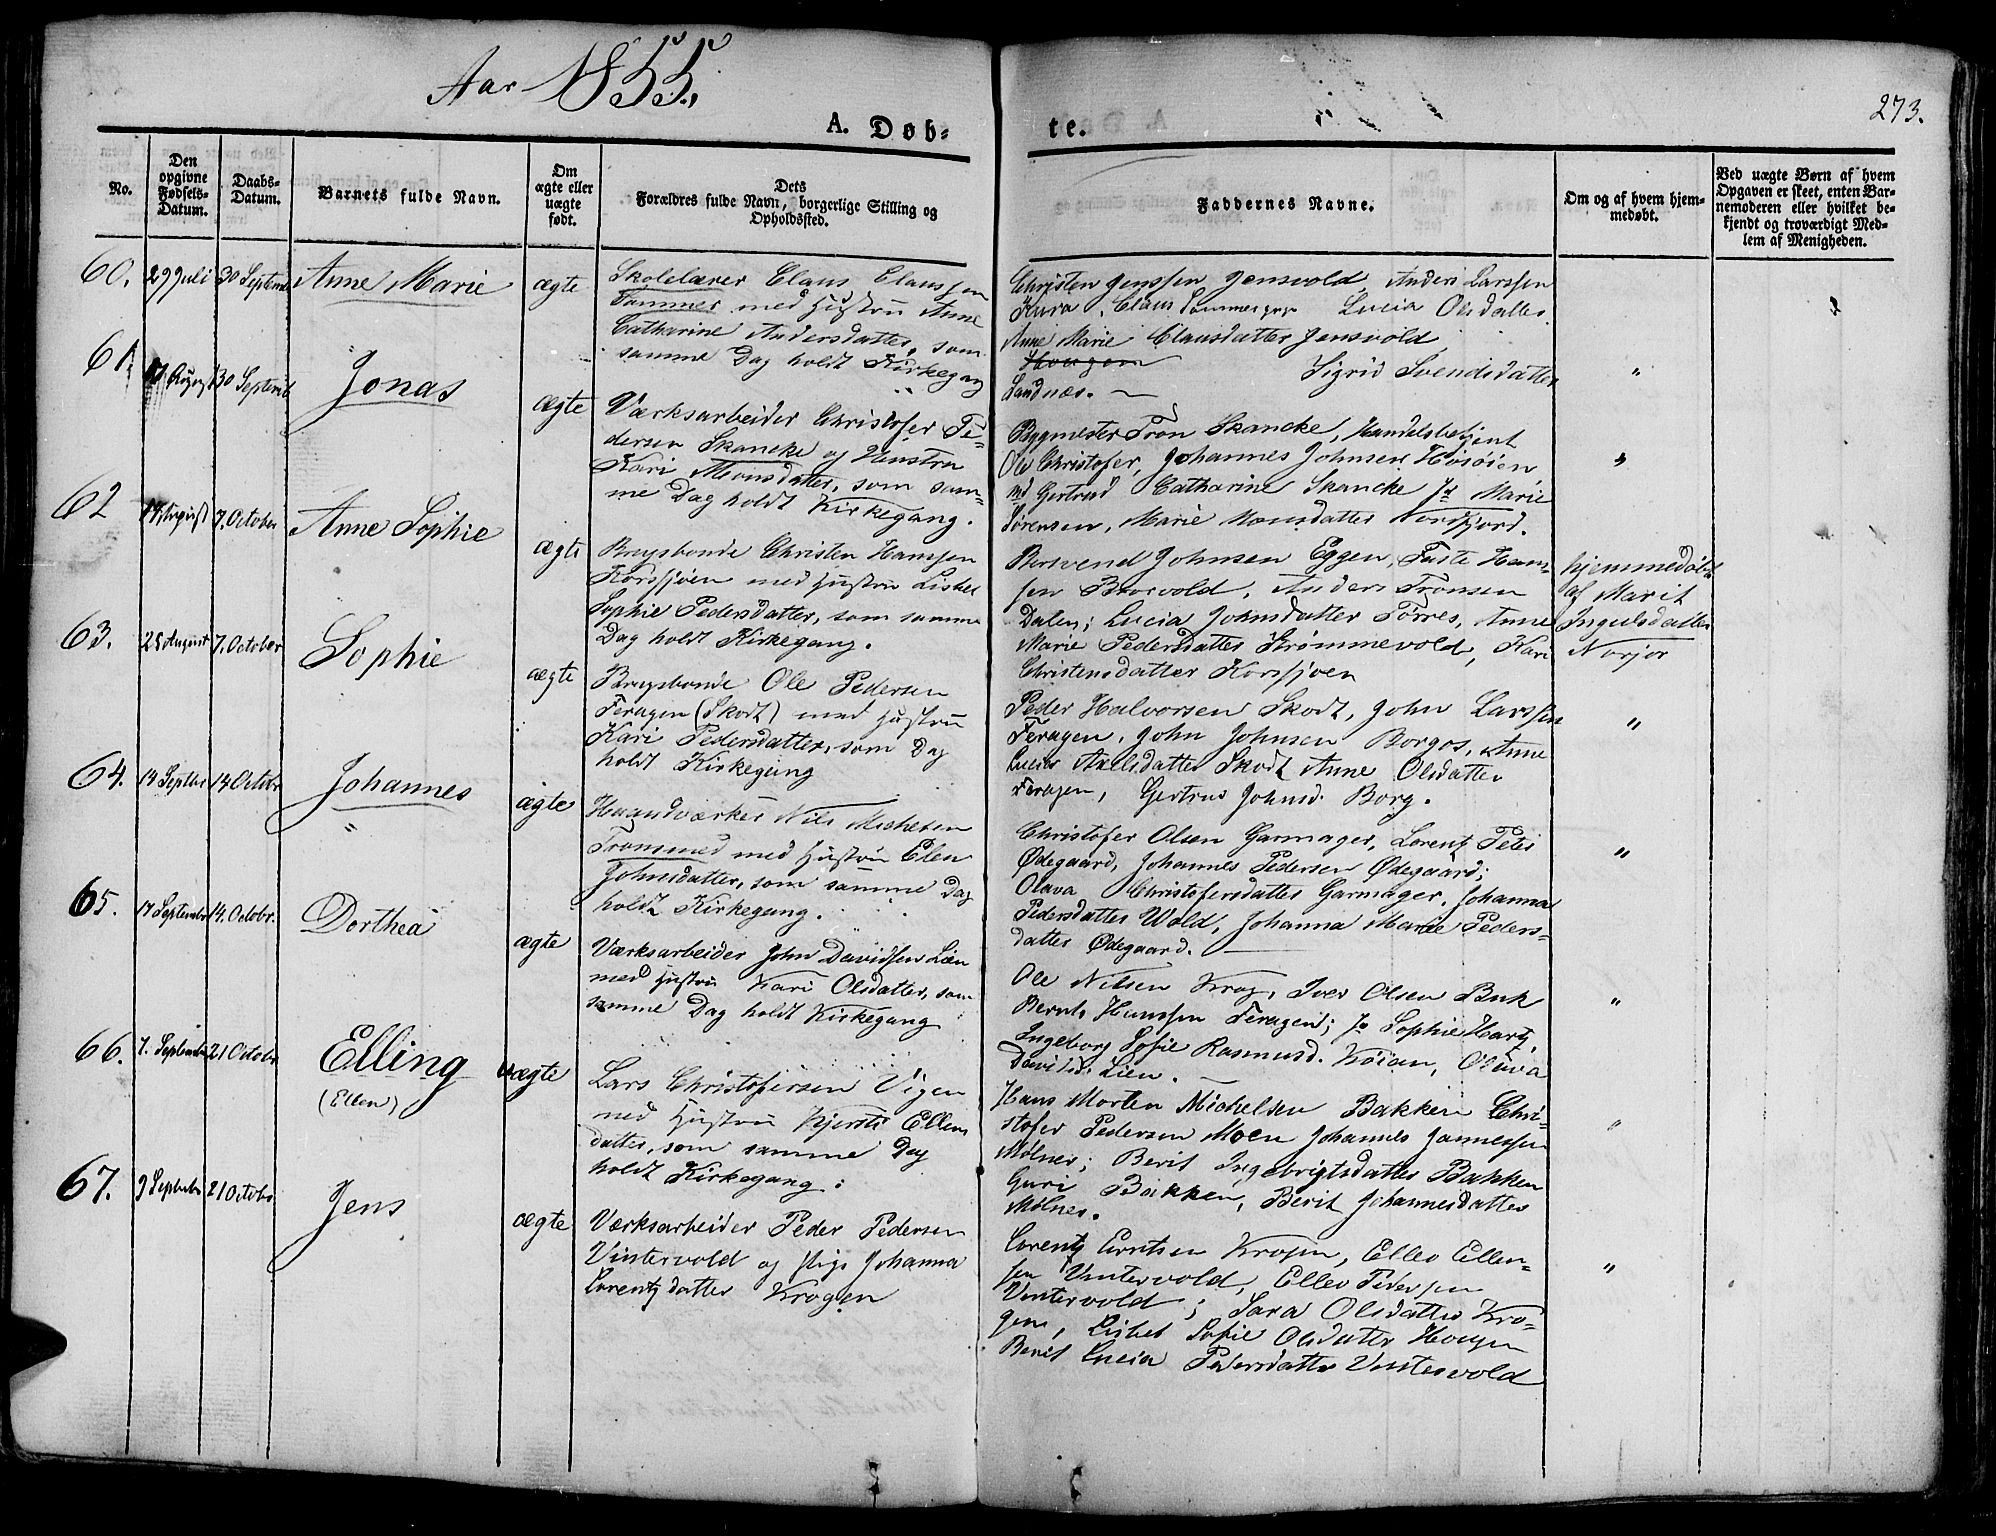 Aar 1855.
A. Døb-
te.
273.
No.
Den opgivne Fødsels-Datum.
Daabs-Datum.
Barnets fulde Navn.
Om ægte eller uægte født.
Dets
Forældres fulde Navn, borgerlige Stilling og
Opholdssted.
Faddernes Navne.
Om og af hvem hjem-
medøbt.
Ved uægte Børn af hvem
Opgaven er skeet, enten Bar-
nemoderen eller hvilket be-
kjendt og troværdigt Med-
lem af Menigheden.
60. 29 Juli 30 Septembr Anne Marie ægte
Skolelærer Claus Claussen
Tammes med Hustru Anne
Catharine Andersdatter, som
samme Dag holdt Kirkegang
Christen Jenssen Jensvold, Anders Larssen
Kura, Claus Lucia Olsdatter
Anne Marie Clausdatter Jensvold
Sigrid Svendsdatter
Sandnæs. —
61. August 30 Septemb Jonas ægte
Værksarbeider Christofer Pe-
dersen Skancke og Hustru
Kari Monsdatter, som sam-
me Dag holdt Kirkegang.
Bygmester Tron Skancke, Handelsbetjent
Ole Christofer, Johannes Johnsen Høsøien
Md Gertrud Catharine Skancke Jf Marie
Sørensen, Marie Monsdatter Nordfjord.
"
62 August 7. October Anne Sophie ægte
Brugsbonde Christen Hanssen
Korssjøen med Hustru Lisbet
Sophie Pedersdatter, som samme
Dag holdt Kirkegang.
Berwend Johnsen Eggen, Faste Hans-
sen Broevold, Anders Tronsen
Dalen; Lucia Johnsdatter Torres, Anne
Marie Pedersdatter Strømmevold, Kari
Christensdatter Korssjøen
hjemmedøbt
af Marit
Ingulsdatter
Norjor
63. 28 August 7. October Sophie ægte
Brugsbonde Ole Pedersen
Feragen (Skodt) med Hustru
Kari Pedersdatter, som Dag
holdt Kirkegang
Peder Halvorsen Skodt, John Larssen
Feragen, John Johnsen Borgos, Anne
Lucia Axelsdatter Skodt Anne Olsdatter
Feragen, Gertrud Johnsd. Borg.
"
64. 14 Septbr 14 Octobr Johannes ægte
"
Haandværker Nils Michelsen
Trommed med Hustru Elen
Johnsdatter, som samme Dag
holdt Kirkegang.
Christofer Olsen Garmager, Lorentz Peter
Ødegaard, Johannes Pedersen Ødegaard;
Olava Christofersdatter Garmager, Johanna
Pedersdatter Wold, Johanna Marie Peders-
datter Ødegaard.
"
65. 17 Septembr 14. Octobr. Dorthea ægte
Værksarbeider John Davidsen Lien
med Hustru Kari Olsdatter, som
samme Dag holdt Kirkegang
Ole Nilsen Krog, Iver Olsen Buk
Bernt Hanssen Feragen; Jf Sophie Hartz,
Ingeborg Sofie Rasmusd. Køien, Oliva
Davidsd. Lien.
"
66. 7. September 21 Octobr Elling uægte
(Ellen)
Lars Christofersen Vigen
med Hustru Kjersti Ellens
datter, som samme Dag
holdt Kirkegang.
Hans Morten Michelsen Bakken Chri-
stofer Pedersen Moen Johannes Jannessen
Mølnes; Berit Ingebrigtsdatter Bakken
Guri Bakken, Berit Johannesdatter
Mølnes.
"
67. 9 Septembr 21 Octobr Jens ægte
Værksarbeider Peder Pedersen
Vintervold og Pige Johanna
Lorentzdatter Krogen
Lorentz Erntsen Krogen, Ellev Ellen-
sen Vintervold, Ellev Pedersen
Vintervold; Sara Olsdatter Kro-
gen, Lisbet Sofie Olsdatter Hougen
Berit Lucia Pedersdatter Vintervold
"